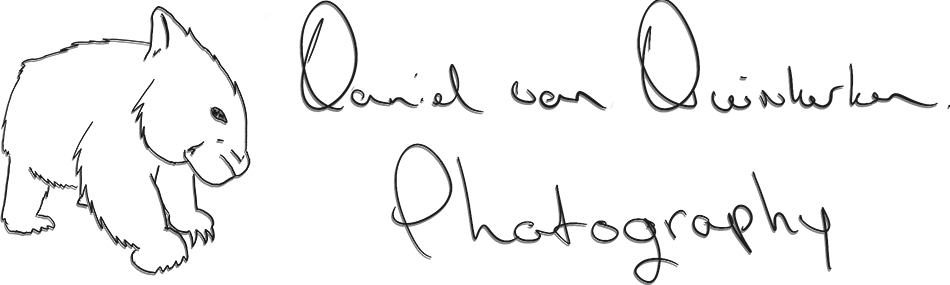 Daniel van Duinkerken
Photography